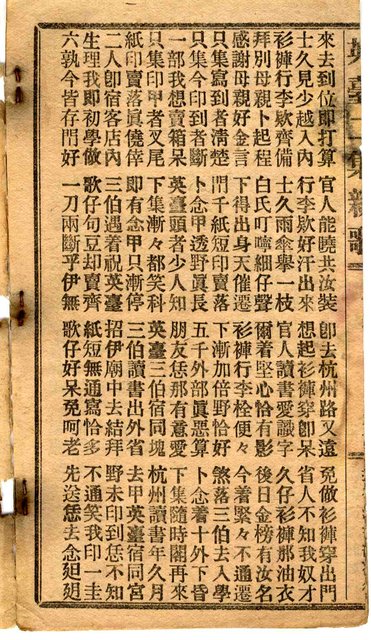 英臺二集新歌
來去到位即打算 官人能曉共汝裝 卽去杭州路又遠 免做衫褲穿出門
士久見少越入內 行李款好汗出來 想起衫褲穿卽呆 省人不知我奴才
衫褲行李款齊備 士久雨傘擧一枝 官人讀書愛識字 久仔衫褲那油衣
拜別母親卜起程 白氏叮嚀細仔聲 爾着堅心恰有影 後日金榜有汝名
感謝母親好金言 下得出身天催遷 衫褲行李栓便々 今着緊々不通遷
只集寫到者清楚 門千紙短印賣落 下漸加倍野恰好 煞落三伯去入學
只集今印到者斷 卜念甲透野眞長 五千外部眞惡算 卜念着十外下昏
一部我想賣箱呆 英臺頭者少人知 朋友恁那有意愛 下集隨時閣再來
只集印甲者叉尾 下集漸々都笑科 英臺三伯宿同塊 杭州讀書年久月
紙印賣落眞僥倖 即有念甲只漸停 三伯讀書出外省 去甲英臺宿同宮
二人卽宿客店內 三伯遇着祝英臺 招伊廟中去結拜 野未印到恁不知
生理我即初學做 歌仔句豆却賣齊 紙短無通寫恰多 不通笑我印一圭
六孰今皆存門好 一刀兩斷乎伊無 歌仔好呆免呵老 先送恁去念